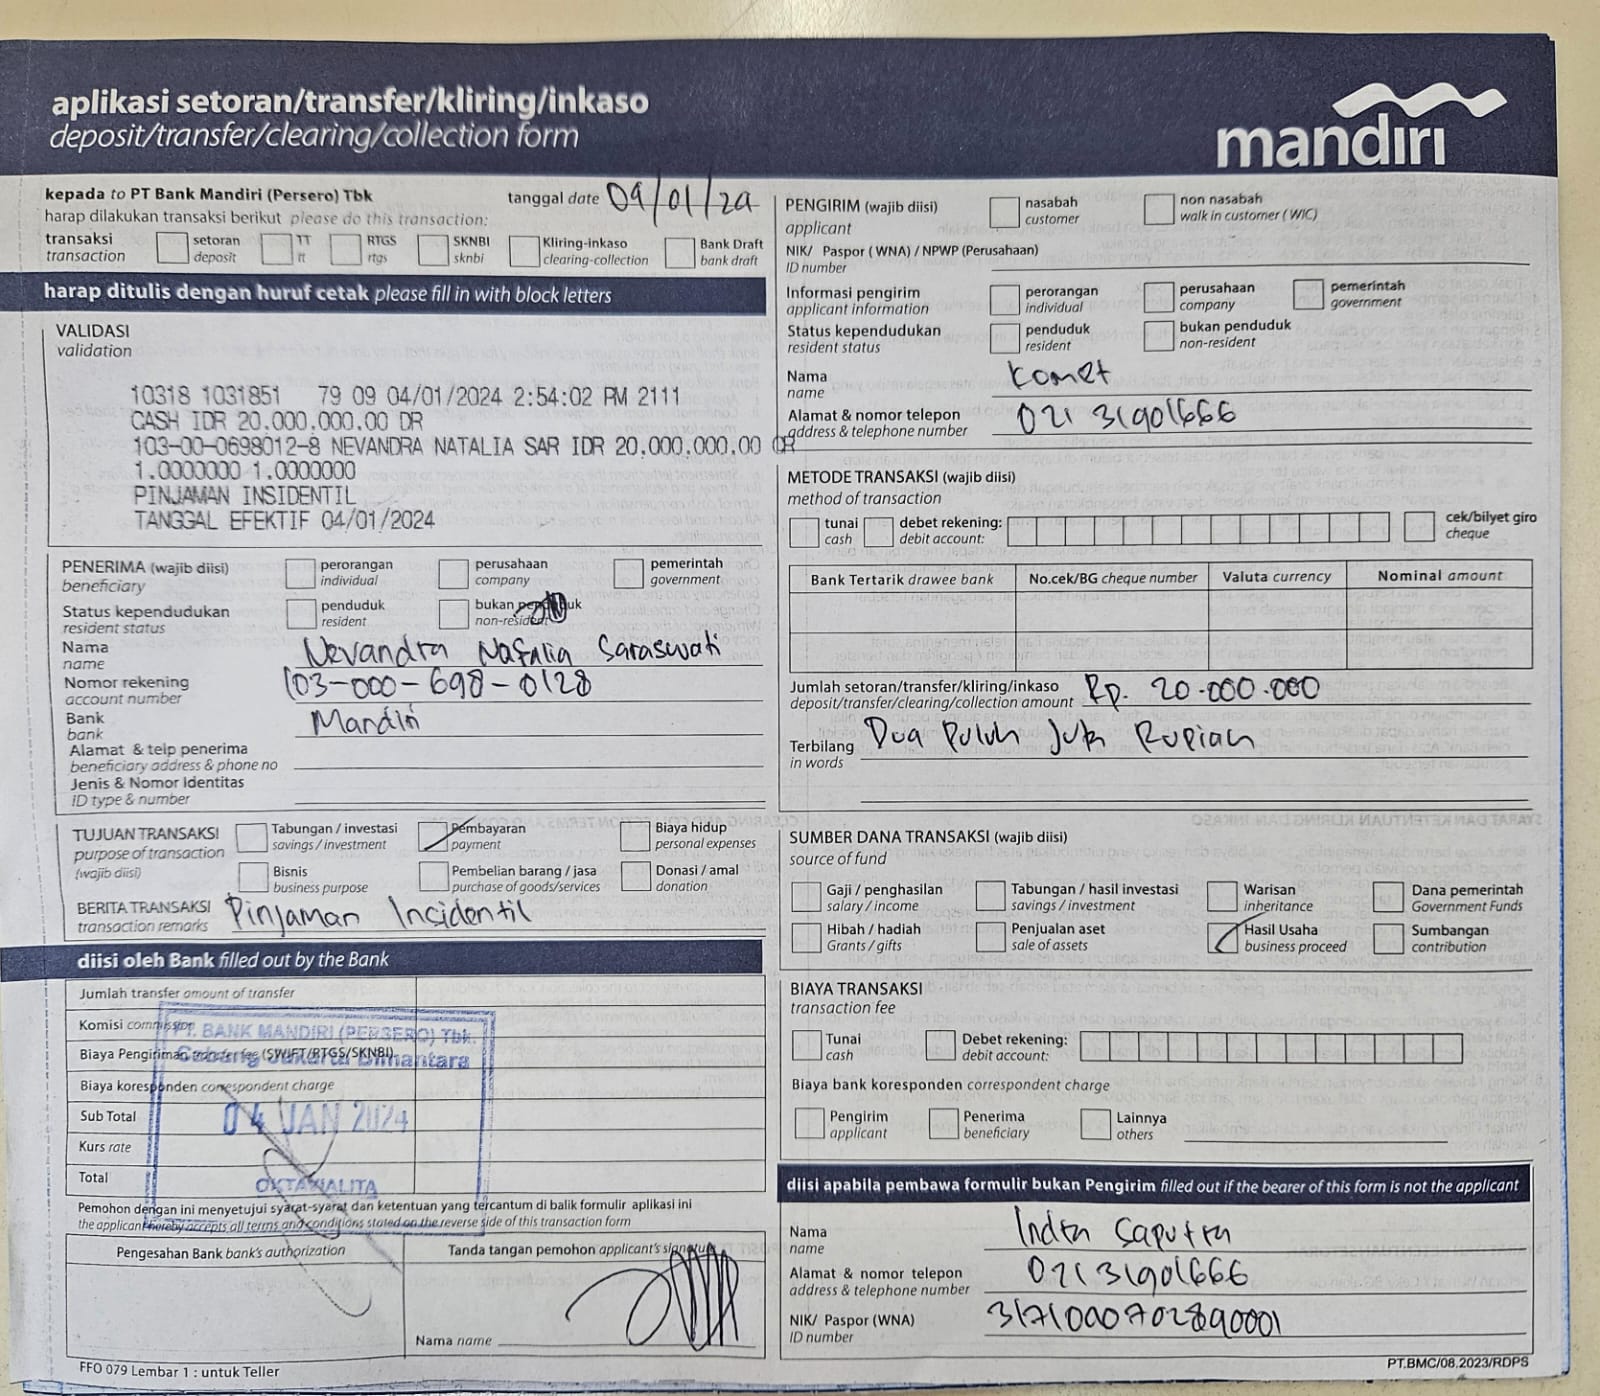 aplikasi setoran/transfer/kliring/inkaso
deposit/transfer/clearing/collection form
mandiri
kepada to PT Bank Mandiri (Persero) Tbk
tanggal date 04/01/24
harap dilakukan transaksi berikut please do this transaction:
transaksi transaction
setoran deposit
TT tt
RTGS rtgs
SKNBI sknbi
Kliring-inkaso clearing-collection
Bank Draft bank draft
harap ditulis dengan huruf cetak please fill in with block letters
VALIDASI
validation
10318 1031851 79 09 04/01/2024 2:54:02 PM 2111
CASH IDR 20.000.000.00 DR
103-00-0698012-8 NEVANDRA NATALIA SAR IDR 20.000.000.00 CR
1.0000000 1.0000000
PINJAMAN INSIDENTIL
TANGGAL EFEKTIF 04/01/2024
PENERIMA (wajib diisi)
beneficiary
perorangan individual
perusahaan company
pemerintah government
Status kependudukan
resident status
penduduk resident
bukan penduduk non-resident
Nama
name
Nevandra Natalia Saraswati
Nomor rekening
account number
103-000-698-0128
Bank
bank
Mandiri
Alamat & telp penerima
beneficiary address & phone no
Jenis & Nomor Identitas
ID type & number
TUJUAN TRANSAKSI
purpose of transaction
(wajib diisi)
Tabungan / investasi savings / investment
Pembayaran payment
Biaya hidup personal expenses
Bisnis business purpose
Pembelian barang / jasa purchase of goods/services
Donasi / amal donation
BERITA TRANSAKSI
transaction remarks
Pinjaman Incidentil
diisi oleh Bank filled out by the Bank
Jumlah transfer amount of transfer
Komisi commission
Biaya Pengiriman transfer fee (SWIFT/RTGS/SKNBI)
Biaya koresponden correspondent charge
Sub Total
Kurs rate
Total
PT. BANK MANDIRI (PERSERO) Tbk.
Cabang Jakarta Bimantara
04 JAN 2024
OKTAVIALITA
Pemohon dengan ini menyetujui syarat-syarat dan ketentuan yang tercantum di balik formulir aplikasi ini
the applicant hereby accepts all terms and conditions stated on the reverse side of this transaction form
Pengesahan Bank bank's authorization
Tanda tangan pemohon applicant's signature
Nama name
FFO 079 Lembar 1 : untuk Teller
PENGIRIM (wajib diisi)
applicant
nasabah customer
non nasabah walk in customer (WIC)
NIK/ Paspor (WNA) / NPWP (Perusahaan)
ID number
Informasi pengirim
applicant information
perorangan individual
perusahaan company
pemerintah government
Status kependudukan
resident status
penduduk resident
bukan penduduk non-resident
Nama
name
Komet
Alamat & nomor telepon
address & telephone number
021 31901666
METODE TRANSAKSI (wajib diisi)
method of transaction
tunai cash
debet rekening: debit account:
cek/bilyet giro cheque
Bank Tertarik drawee bank
No.cek/BG cheque number
Valuta currency
Nominal amount
Jumlah setoran/transfer/kliring/inkaso
deposit/transfer/clearing/collection amount
Rp. 20.000.000
Terbilang
in words
Dua Puluh Juta Rupiah
SUMBER DANA TRANSAKSI (wajib diisi)
source of fund
Gaji / penghasilan salary / income
Tabungan / hasil investasi savings / investment
Warisan inheritance
Dana pemerintah Government Funds
Hibah / hadiah Grants / gifts
Penjualan aset sale of assets
Hasil Usaha business proceed
Sumbangan contribution
BIAYA TRANSAKSI
transaction fee
Tunai cash
Debet rekening: debit account:
Biaya bank koresponden correspondent charge
Pengirim applicant
Penerima beneficiary
Lainnya others
diisi apabila pembawa formulir bukan Pengirim filled out if the bearer of this form is not the applicant
Nama
name
Indra Saputra
Alamat & nomor telepon
address & telephone number
021 31901666
NIK/ Paspor (WNA)
ID number
3171090702890001
PT.BMC/08.2023/RDPS